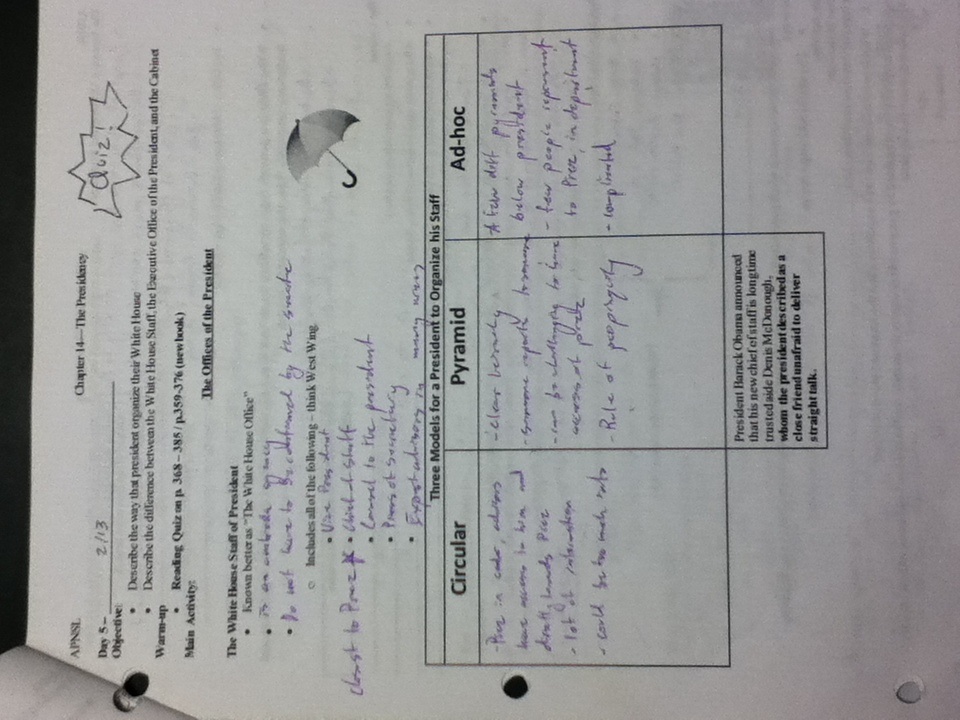 APNSL
Chapter 14—The Presidency
Quiz!
Day 5 – 2/13
Objective:
• Describe the way that president organize their White House
• Describe the difference between the White House Staff, the Executive Office of the President, and the Cabinet
Warm-up
• Reading Quiz on p. 368 – 385 / p.359-376 (new book)
Main Activity:
The Offices of the President
The White House Staff of President
• Known better as "The White House Office"
• is an umbrella agency
• Do not have to be confirmed by the senate
○ Includes all of the following – think West Wing
• Vice President
closest to Prez * • Chief of Staff
• Counsel to the president
• Press secretary
• Expert advisors in many areas
Three Models for a President to Organize his Staff
Circular
Pyramid
Ad-hoc
- Prez in center, advisors
have access to him and
directly towards Prez
- lot of information
- could be too much info
- clear hierarchy
- someone reports to someone
- can be challenging to have
access of prez
- Rule of
A few diff pyramids
below president
- few people represent
to Prez, in department
- complicated
President Barack Obama announced
that his new chief of staff is longtime
trusted aide Denis McDonough,
whom the president described as a
close friend unafraid to deliver
straight talk.